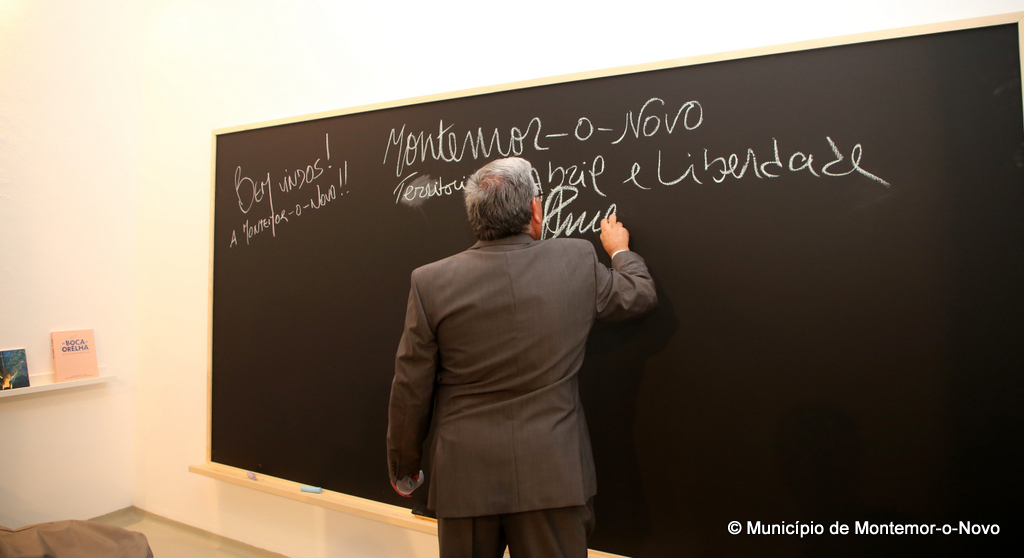 BEM VINDOS!
A MONTEMOR-O-NOVO!!
Montemor-o-Novo
Abril e Liberdade
BOCA
ORELHA
© Município de Montemor-o-Novo